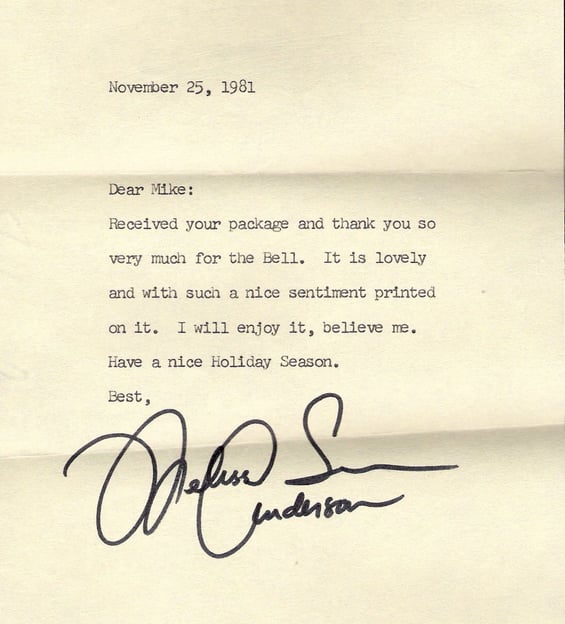 November 25, 1981
Dear Mike:
Received your package and thank you so
very much for the Bell.  It is lovely
and with such a nice sentiment printed
on it.  I will enjoy it, believe me.
Have a nice Holiday Season.
Best,
Melissa Sue
Anderson